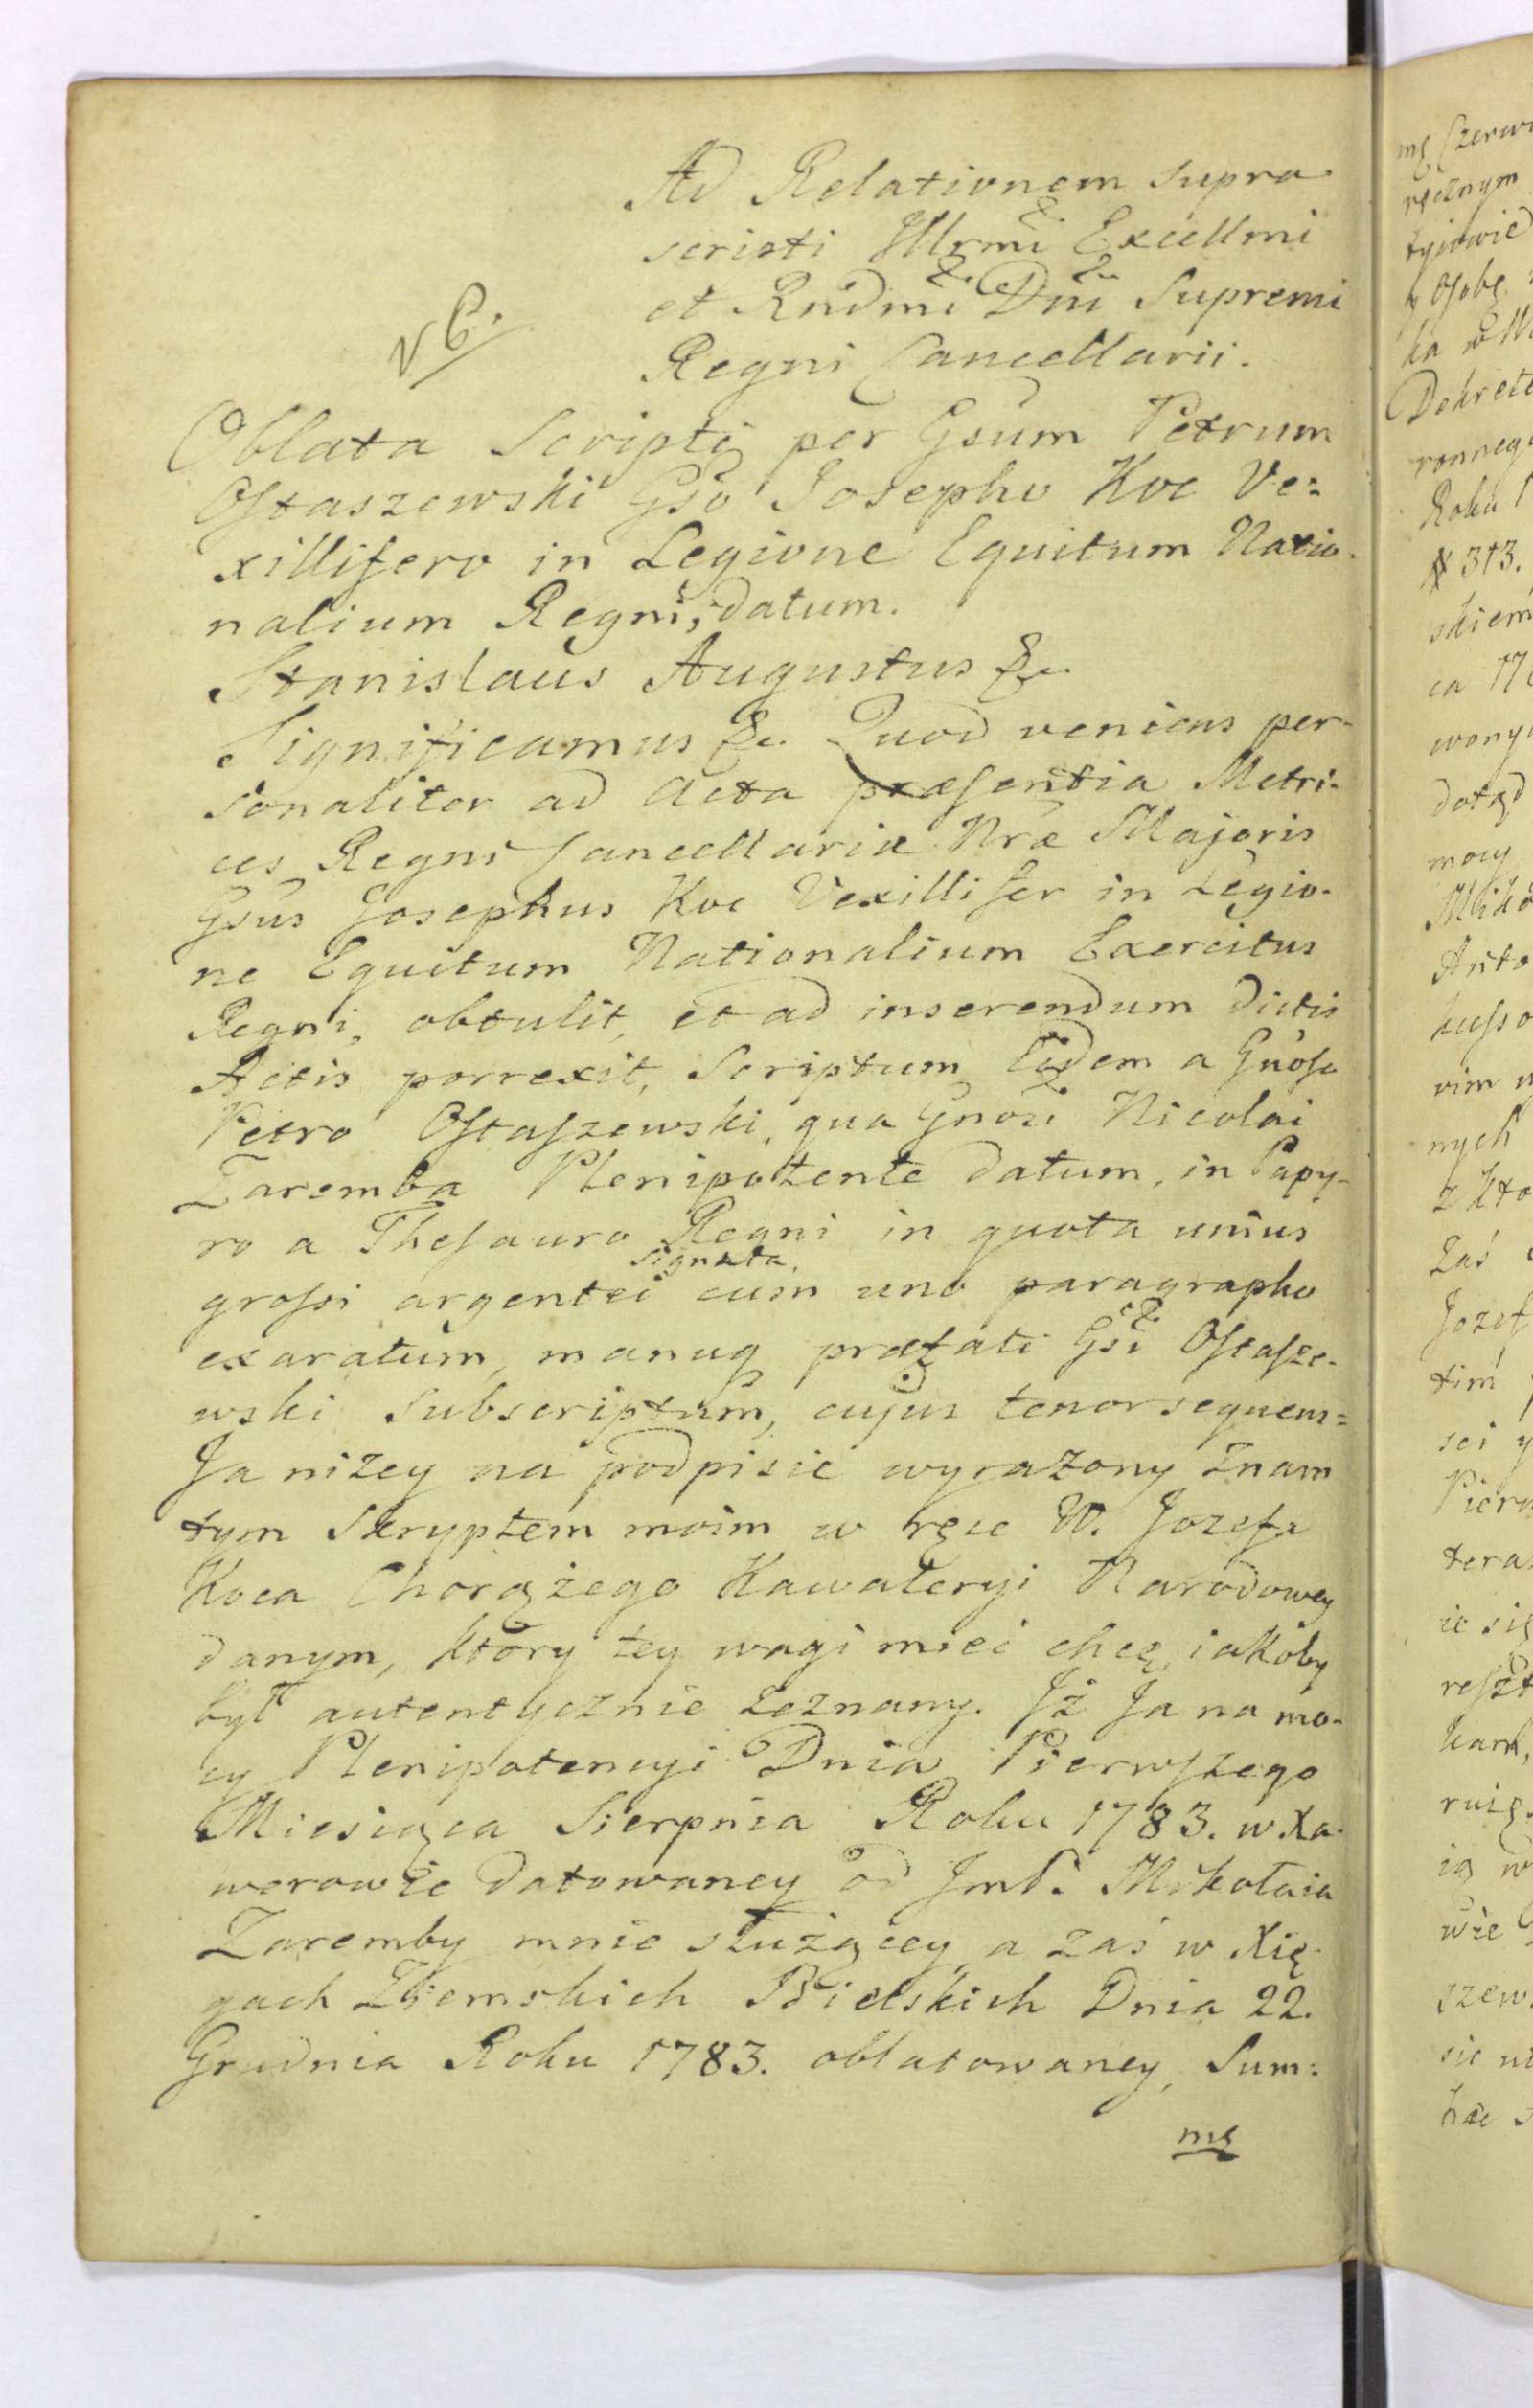 Ad Relationem supra
scripti Illrmi Excellmi
et Rndmi Dni Supremi
Regni Cancellarii.
Oblata Scripti per Gsum Petrum
Ostaszewski Gso Josepho Koc Ve=
xillifero in Legione Equitum Natio-
nalium Regni, datum.
Stanislaus Augustus &c.
Significamus &c. Quod veniens per-
sonaliter ad Acta præsentia Metri-
ces Regni Cancellariæ Nræ Majoris
Gsus Josephus Koc Vexillifer in Legio-
ne Equitum Nationalium Exercitus
Regni, obtulit, et ad inserendum dictis
Actis porrexit, Scriptum Eidem a Gnoso
Petro Ostaszewski, qua Gnosi Nicolai
Zaremba Plenipotente datum, in Papy-
ro a Thesauro Regni in quota unius
grossi argentei signata, cum uno paragrapho
exaratum, manuq præfati Gsi Ostasze-
wski subscriptum, cujus tenor sequens=
Ja niżey na podpisie wyrażony znam
tym Skryptem moim w ręce W. Jozefa
Koca Chorążego Kawaleryi Narodowey
danym, który tey wagi mieć chcę, iakoby
był autentycznie zeznany. Iż Ja na mo-
cy Plenipotencyi Dnia Pierwszego
Miesiąca Sierpnia Roku 1783. w Xa-
werowie datowaney od JmP. Mikołaia
Zaremby mnie służącey, a zaś w Xię-
gach Ziemskich Bielskich Dnia 22.
Grudnia Roku 1783. oblatowaney, Sum=
mę
mę
ręcznym
Osobę
Roku
N 313.
dotąd
mocy
nych
zaś
Jozef